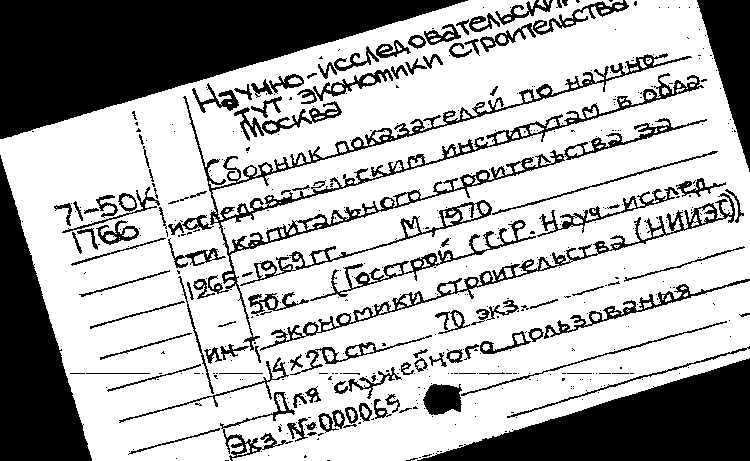 Научно-исследовательский
тут экономики строительства.
Москва
Сборник показателей по научно-
исследовательским институтам в обла-
сти капитального строительства за
1965-1969 гг. М., 1970
50 с. (Госстрой СССР. Науч.-исслед.
ин-т экономики строительства (НИИЭС)).
14×20 см. 70 экз.
Для служебного пользования.
Экз. №000069
71-50К
1766